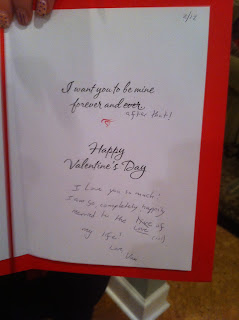 2/12
I want you to be mine
forever and ever
after that!
Happy
Valentine's Day
I love you so much!
I am so, completely happily
married to the love of
my life!
Love